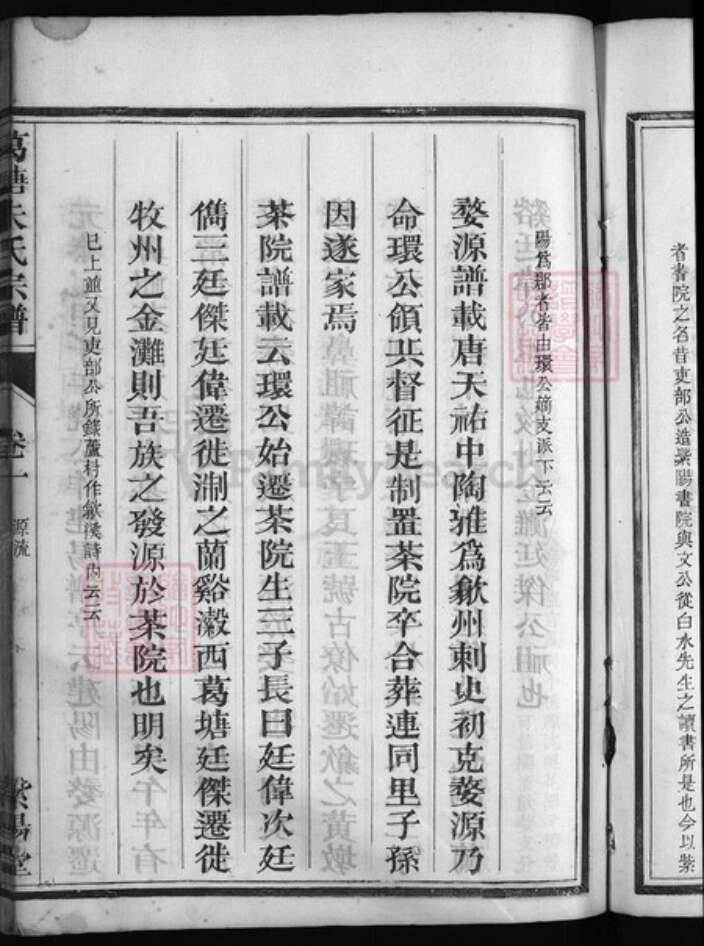 者書院之名昔吏部公造紫陽書院與文公從白水先生之讀書所是也今以紫
陽爲郡者皆由環公嫡支派下云云
婺源譜載唐天祐中陶雅爲歙州刺史初克婺源乃
命環公領兵督征是制置茶院卒合葬連同里子孫
因遂家焉
茶院譜載云環公始遷茶院生三子長曰廷偉次廷
儁三廷傑廷偉遷徙淛之蘭谿瀫西葛塘廷傑遷徙
牧州之金灘則吾族之發源於茶院也明矣
已上並又見吏部公所錄蘆村作歙溪詩內云云
葛塘朱氏宗譜 卷一 源流 紫陽堂
FamilySearch